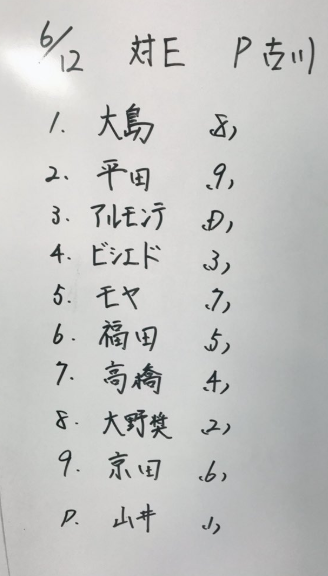 6/12 対E P古川
1. 大島 8,
2. 平田 9,
3. アルモンテ D,
4. ビシエド 3,
5. モヤ 7,
6. 福田 5,
7. 高橋 4,
8. 大野奨 2,
9. 京田 6,
P. 山井 1,